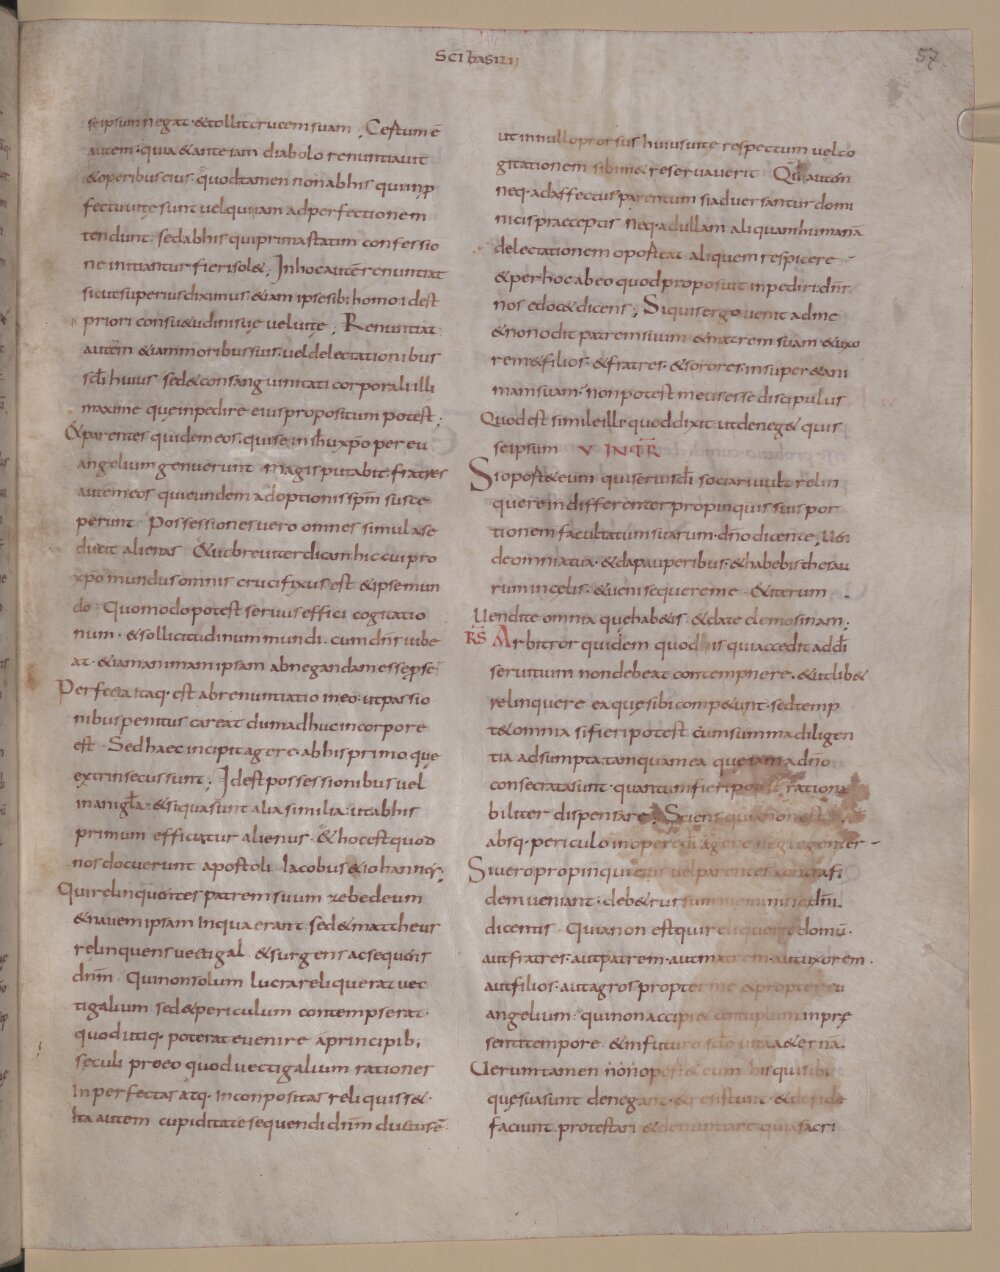 SCI BASILII
57
seipsum negat · & tollit crucem suam ; Certum ē
autem · quia & ante iam diabolo renuntiauit
& operibus eius · quod tamen non ab his qui inp̄
fectu uite sunt uel qui iam ad perfectionem
tendunt · sed ab his qui prima statim confessio
ne initiantur fieri sol& , In hoc autē renuntiat
sicut superius diximus · & iam ipse sibi homo idest
priori consu&udini suę uel uitę ; Renuntiat
autem & iam moribus suis · uel delectationibus
scłi huius sed & consanguinitati corporali illi
maxime quę inpedire eius propositum potest ;
& parentes quidem eos · qui se in ihū xpo per eu
angelium genuerunt magis putabit · fratres
autem eos qui eundem adoptionis spm̄ susce
perunt · Possessiones uero omnes simul a se
ducit alienas & ut breuiter dicam · hic cui pro
xpo mundus omnis crucifixus est & ipse mun
do · Quomodo potest seruus effici cogitatio
num · & sollicitudinum mundi · cum dn̄s iube
at · & iam animam ipsam abnegandam esse p se
Perfecta itaq· est abrenuntiatio in eo · ut passio
nibus penitus careat dum adhuc in corpore
est · Sed haec incipit agere · ab his primo · quę
extrinsecus sunt ; Idest possessionibus uel
inani gła · & siqua sunt alia similia · ut ab his
primum efficiatur alienus · & hoc est quod
nos docuerunt apostoli Iacobus & iohannes ;
Qui relinquentes patrem suum zebedeum
& nauem ipsam in qua erant sed & mattheus
relinquens uectigal & surgens ac sequens
dnm̄ · Qui non solum lucra reliquerat uec
tigalium sed & periculum contempserat ·
quod utiq· poterat euenire a principib;
seculi pro eo quod uectigalium rationes
inperfectas atq· inconpositas reliquiss& ·
Ita autem cupiditate sequendi dnm̄ ductus ē
ut in nullo prorsus huius uitę respectum uel co
gitationem sibim& reseruauerit Qd̄ autem
neq· ad affectus parentum si aduersantur domi
nicis praeceptis neq· ad ullam aliquam humanā
delectationem oporteat aliquem respicere
& per hoc ab eo quod proposuit inpediri · dn̄s
nos edoc& dicens ; Si quis ergo uenit ad me
& non odit patrem suum & matrem suam & uxo
rem & filios · & fratres · & sorores · insuper & ani
mam suam · non potest meus esse discipulus
Quod est simile illi quod dixit ut deneg& quis
seipsum V INTR̄
Si oport& eum qui seruis dī sociari uult relin
quere indifferenter propinquis suis por
tionem facultatum suarum · dn̄o dicente ; Uen
de omnia tua · & da pauperibus · & habebis thesau
rum in celis · & ueni sequere me & iterum
Uendite omnia quę hab&is & date elemosinam ;
RS̄ Arbitror quidem quod is qui accedit ad dī
seruitium non debeat contempnere · & utlib&
relinquere ea quę sibi comp&unt · sed temp
t& omnia si fieri potest cum summa diligen
tia adsumpta tanquam ea quę iam dn̄o
consecrata sunt · quantum fieri potest rationa
biliter dispensare ; Sciens quia non est
absq· periculo in opere dī agere neglegenter
Si uero propinqui eius uel parentes contra fi
dem ueniant · deb& rursum meminisse dn̄i
dicentis Quia non est qui reliquerit domū ·
aut fratres · aut patrem · aut matrem · aut uxorem ·
aut filios · aut agros propter me & propter eu
angelium · qui non accipi& centuplum in prę
senti tempore · & in futuro sclo uita &erna ·
Uerumtamen non oport& eum his qui sibi
quę sua sunt denegant · & resistunt · & de fide
faciunt protestari & denuntiare quia sacri